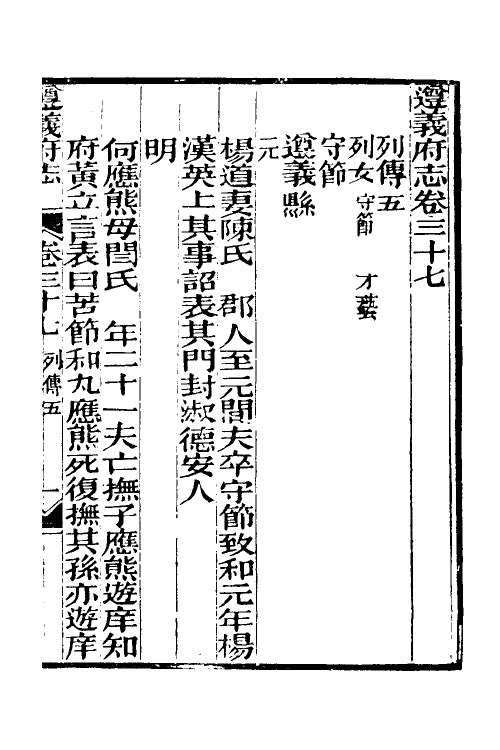 遵義府志卷三十七
列傳五
列女 守節 才藝
守節
遵義縣
元
楊道妻陳氏 郡人至元間夫卒守節致和元年楊
漢英上其事詔表其門封淑德安人
明
何應熊母閆氏 年二十一夫亡撫子應熊遊庠知
府黃立言表曰苦節和丸應熊死復撫其孫亦遊庠
遵義府志 卷三十七 列傳五 一